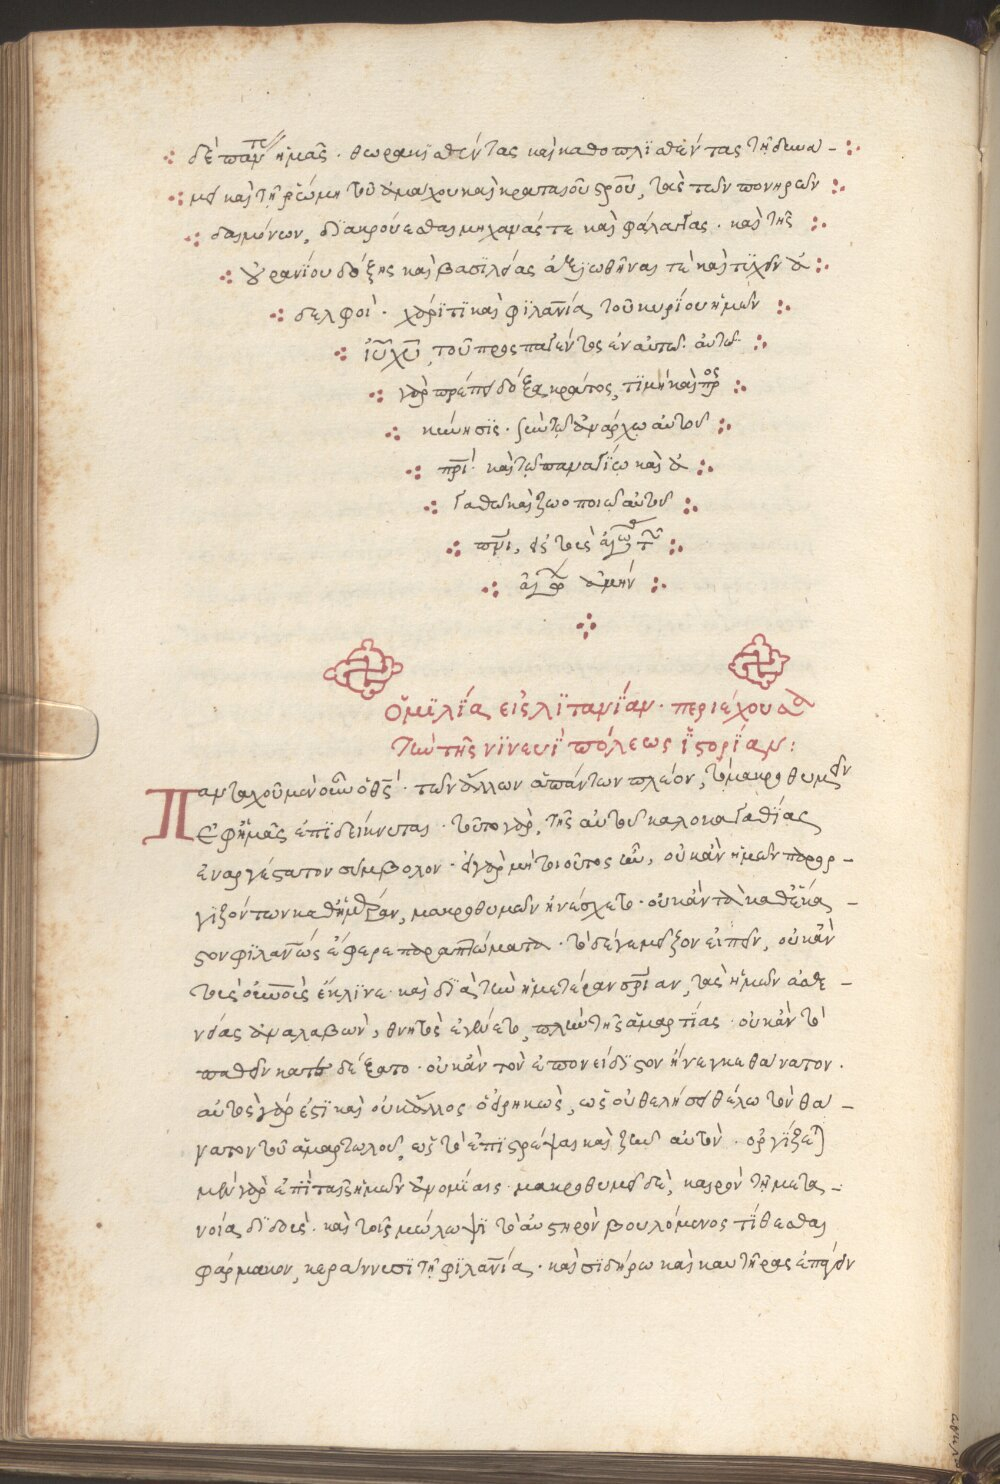 δὲ πάντας ἡμᾶς · θωρακισθέντας καὶ καθοπλισθέντας τῇ δυνά-
μει καὶ τῇ ῥώμῃ τοῦ ἀμάχου καὶ κραταιοῦ σροῦ, τὰς τῶν πονηρῶν
δαιμόνων, διακρούεσθαι μηχανάς τε καὶ φάλαγγας · καὶ τῆς
οὐρανίου δόξης καὶ βασιλείας ἀξιωθῆναί τε καὶ τυχεῖν ἀ
δελφοί · χάριτι καὶ φιλανίᾳ τοῦ κυρίου ἡμῶν
ἰῦ χῦ, τοῦ προσπαγέντος ἐν αὐτῷ · αὐτῷ
γὰρ πρέπει δόξα κράτος, τιμὴ καὶ προς
κύνησις · σὺν τῷ ἀνάρχῳ αὐτοῦ
πρί · καὶ τῷ παναγίῳ καὶ ἀ
γαθῷ καὶ ζωοποιῷ αὐτοῦ
πνι, εἰς τοὺς αἰῶ τ
αἰώ ἀμήν
Ὁμιλία εἰς λιτανίαν · περιέχουσα
τὴν τῆς νινευὶ πόλεως ἱστορίαν :
Πανταχοῦ μὲν οὖν ὁ θς · τῶν ἄλλων ἁπάντων πλέον, τὸ μακρόθυμον
ἐφ' ἡμᾶς ἐπιδείκνυται · τοῦτο γὰρ, τῆς αὐτοῦ καλοκαγαθίας
ἐναργέστατον σύμβολον · εἰ γὰρ μὴ τοιοῦτος ἦν, οὐκ ἂν ἡμῶν παροργ-
γιζόντων καθ' ἡμέραν, μακροθυμῶν ἠνέσχετο · οὐκ ἂν τὰ καθ' ἑκά-
στον φιλανως ἔφερε παραπτώματα · τὸ δέ γε μεῖζον εἰπεῖν, οὐκ ἂν
τοὺς οὐνοὺς ἔκλινε · καὶ διὰ τὴν ἡμετέραν σρίαν, τὰς ἡμῶν ἀσθε-
νείας ἀναλαβὼν, θνητὸς ἐγένετο, πλὴν τῆς ἁμαρτίας · οὐκ ἂν τὸ
παθεῖν κατεδέξατο · οὐκ ἂν τὸν ἐπονείδιστον ἤνεγκε θάνατον ·
αὐτὸς γάρ ἐστι καὶ οὐκ ἄλλος ὁ εἰρηκὼς, ὡς οὐ θελήσει θέλω τὸν θά-
νατον τοῦ ἁμαρτωλοῦ, ὡς τὸ ἐπιστρέψαι καὶ ζῆν αὐτόν · ὀργίζεται
μὲν γὰρ ἐπὶ ταῖς ἡμῶν ἀνομίαις · μακροθυμεῖ δὲ, καιρὸν τῇ μετα-
νοίᾳ διδοὺς · καὶ τοῖς μώλωψι τὸ αὐστηρὸν βουλόμενος τίθεσθαι
φάρμακον, κεράννυσι τῇ φιλανίᾳ · καὶ σιδήρῳ καὶ καυτῆρας